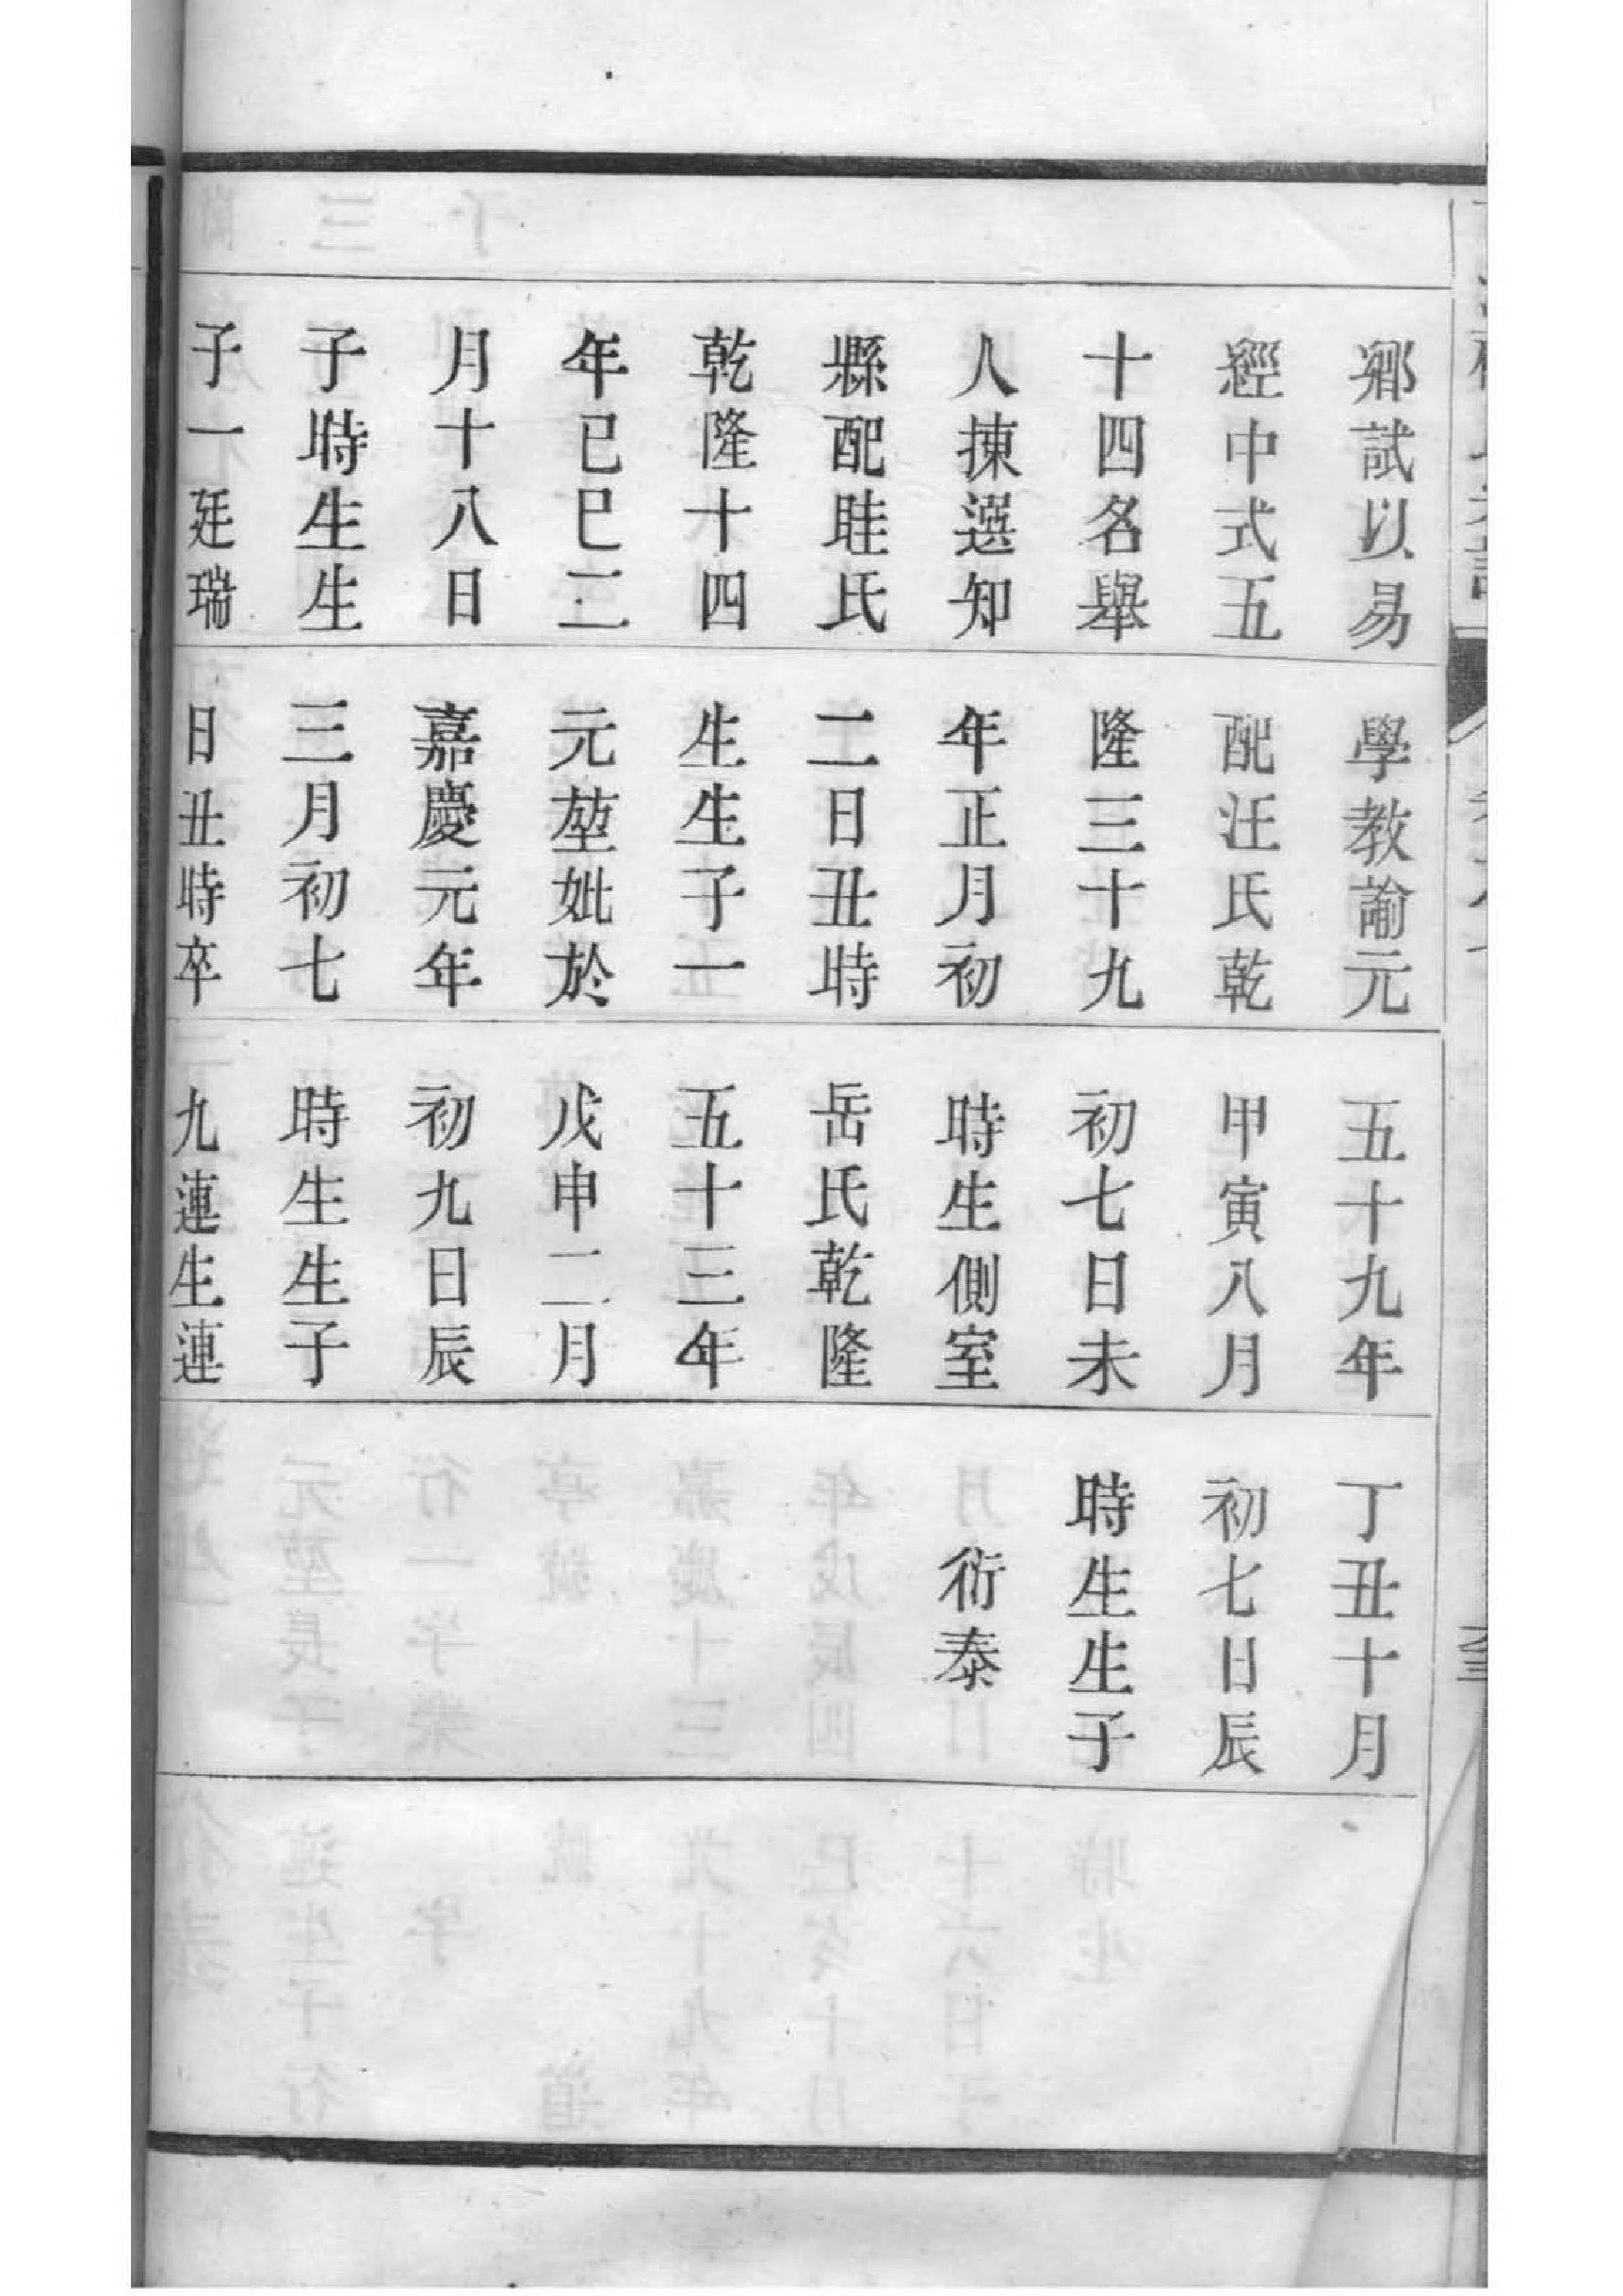 鄉試以易
經中式五
十四名舉
人揀選知
縣配眭氏
乾隆十四
年己巳二
月十八日
子時生生
子一廷瑞
學教諭元
配汪氏乾
隆三十九
年正月初
二日丑時
生生子一
元堃妣於
嘉慶元年
三月初七
日丑時卒
五十九年
甲寅八月
初七日未
時生側室
岳氏乾隆
五十三年
戊申二月
初九日辰
時生生子
九連生連
丁丑十月
初七日辰
時生生子
衍泰